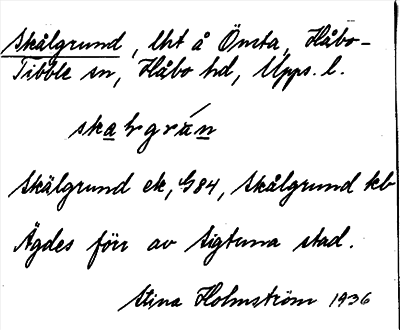 Skålgrund, lht å Önsta, Håbo-
Tibble sn, Håbo hd, Upps. l.
Skålgrund ek, G84, Skålgrund kb
Ägdes förr av Sigtuna stad.
Stina Holmström 1936